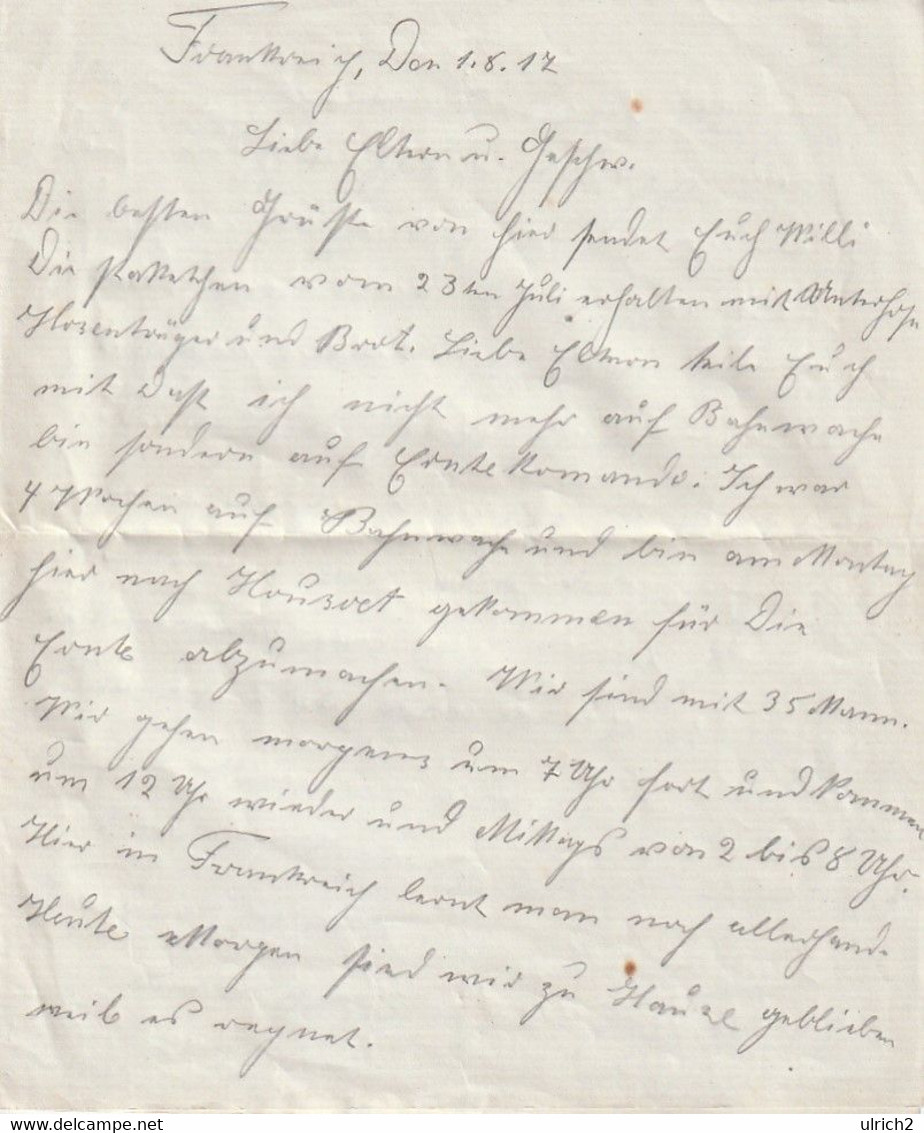 Frankreich, Den 1.8.17
Liebe Eltern u. Geschw.
Die besten Grüsse von hier sendet Euch Willi
Die Paketchen vom 23ten Juli erhalten mit Unterhose
Hosenträger und Brot. Liebe Eltern teile Euch
mit Dass ich nicht mehr auf Bahnwache
bin sondern auf Erntekomando. Ich war
4 Wochen auf Bahnwache und bin am Montag
hier nach gekommen für Die
Ernte abzumachen. Wir sind mit 35 Mann.
Wir gehen morgens um 7 Uhr fort und kommen
um 12 Uhr wieder und Mittags von 2 bis 8 Uhr.
Hier in Frankreich lernt man noch allerhand.
Heute Morgen sind wir zu Hause geblieben
weil es regnet.
delcampe.net
ulrich2